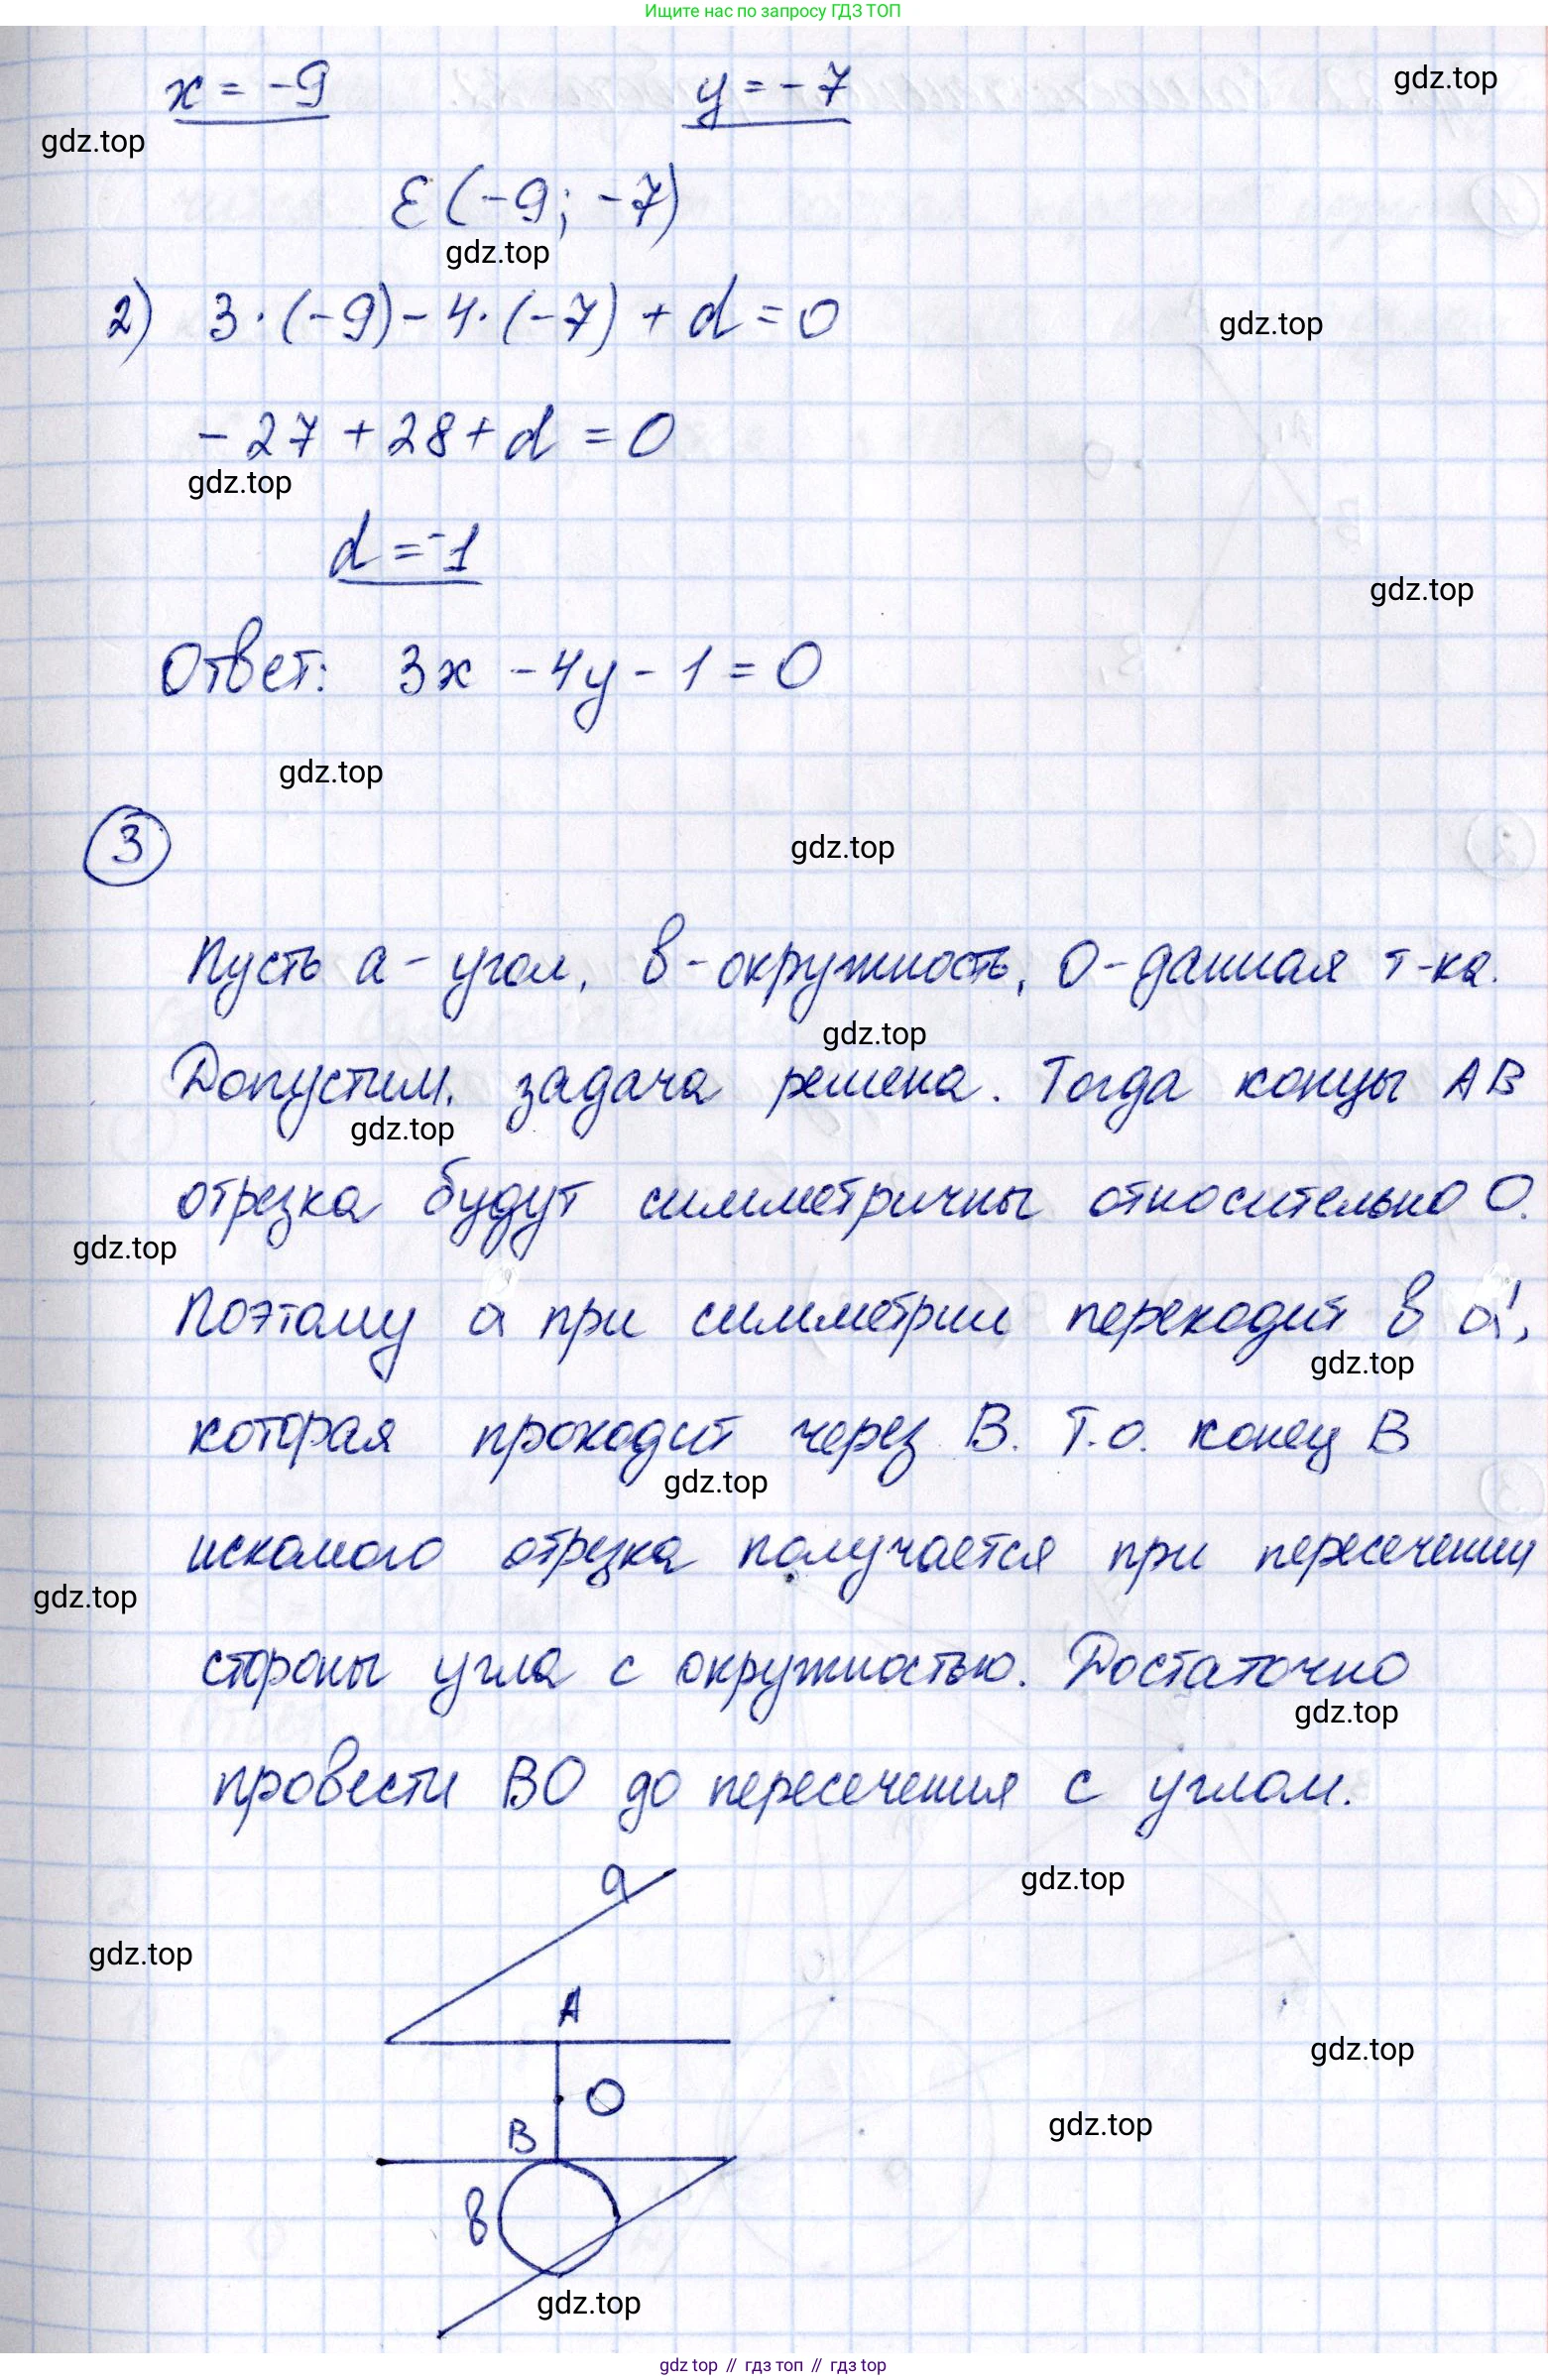 Ищите нас по запросу ГДЗ ТОП
x = -9 y = -7
gdz.top
gdz.top
E (-9; -7)
gdz.top
2) 3·(-9) - 4·(-7) + d = 0
gdz.top
-27 + 28 + d = 0
gdz.top
d = -1
gdz.top
Ответ: 3x - 4y - 1 = 0
gdz.top
3
gdz.top
Пусть a - угол, в - окружность, O - данная т-ка.
gdz.top
Допустим, задача решена. Тогда концы AB
gdz.top
отрезка будут симметричны относительно O.
gdz.top
Поэтому a при симметрии переходит в a',
gdz.top
которая проходит через B. Т.о. конец B
gdz.top
искомого отрезка получается при пересечении
gdz.top
стороны угла с окружностью. Достаточно
gdz.top
провести BO до пересечения с углом.
a
gdz.top
gdz.top
A
gdz.top
O
gdz.top
B
в
gdz.top
gdz top // гдз топ // гдз top